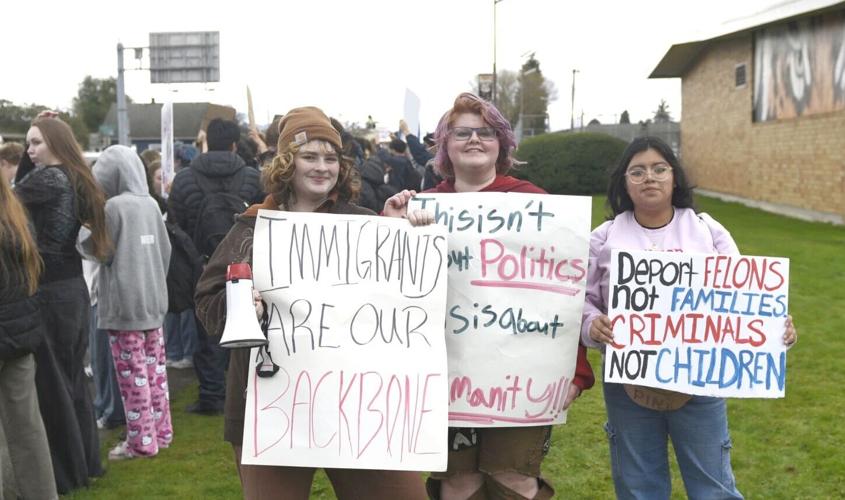 IMMIGRANTS
ARE OUR
BACKBONE
This isn't
Politics
is about
manity!!!
Deport FELONS
not FAMILIES,
CRIMINALS
NOT CHILDREN